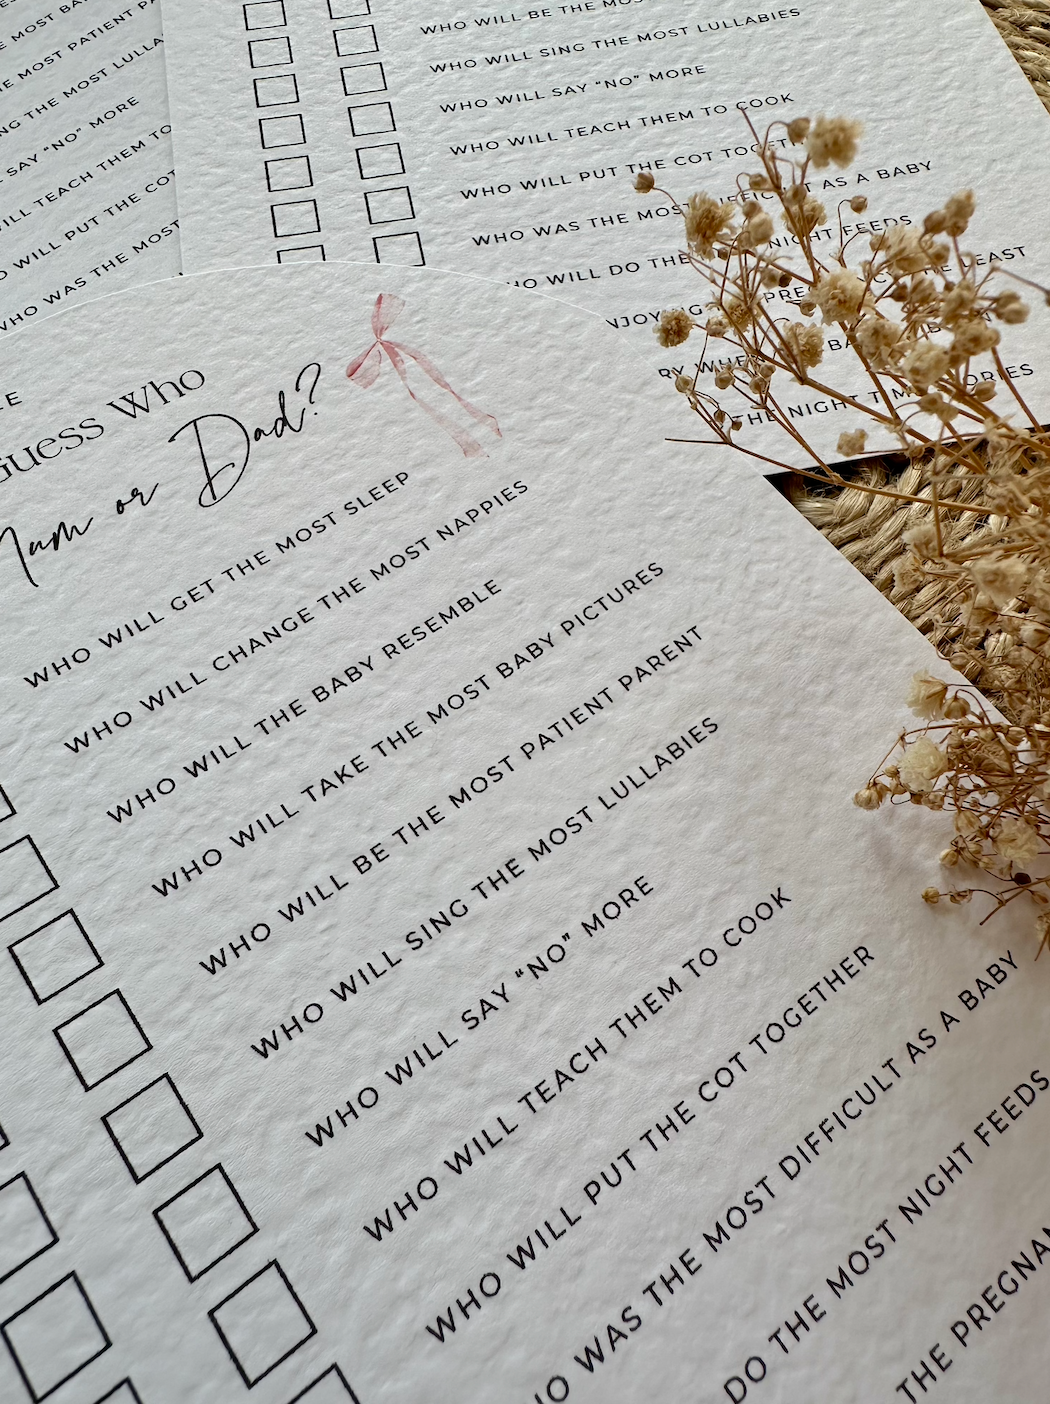 E MOST PATIENT
NG THE MOST
SAY “NO” MORE
TEACH THEM TO
WILL PUT THE COT
WHO WAS THE MOST
WHO WILL BE THE
WHO WILL SING THE MOST LULLABIES
WHO WILL SAY “NO” MORE
WHO WILL TEACH THEM TO COOK
WHO WILL PUT THE COT
WHO WAS THE MOST AS A BABY
WILL DO THE NIGHT FEEDS
LEAST
THE NIGHT
Guess Who
Mum or Dad?
WHO WILL GET THE MOST SLEEP
WHO WILL CHANGE THE MOST NAPPIES
WHO WILL THE BABY RESEMBLE
WHO WILL TAKE THE MOST BABY PICTURES
WHO WILL BE THE MOST PATIENT PARENT
WHO WILL SING THE MOST LULLABIES
WHO WILL SAY “NO” MORE
WHO WILL TEACH THEM TO COOK
WHO WILL PUT THE COT TOGETHER
WHO WAS THE MOST DIFFICULT AS A BABY
DO THE MOST NIGHT FEEDS
THE PREGNAN